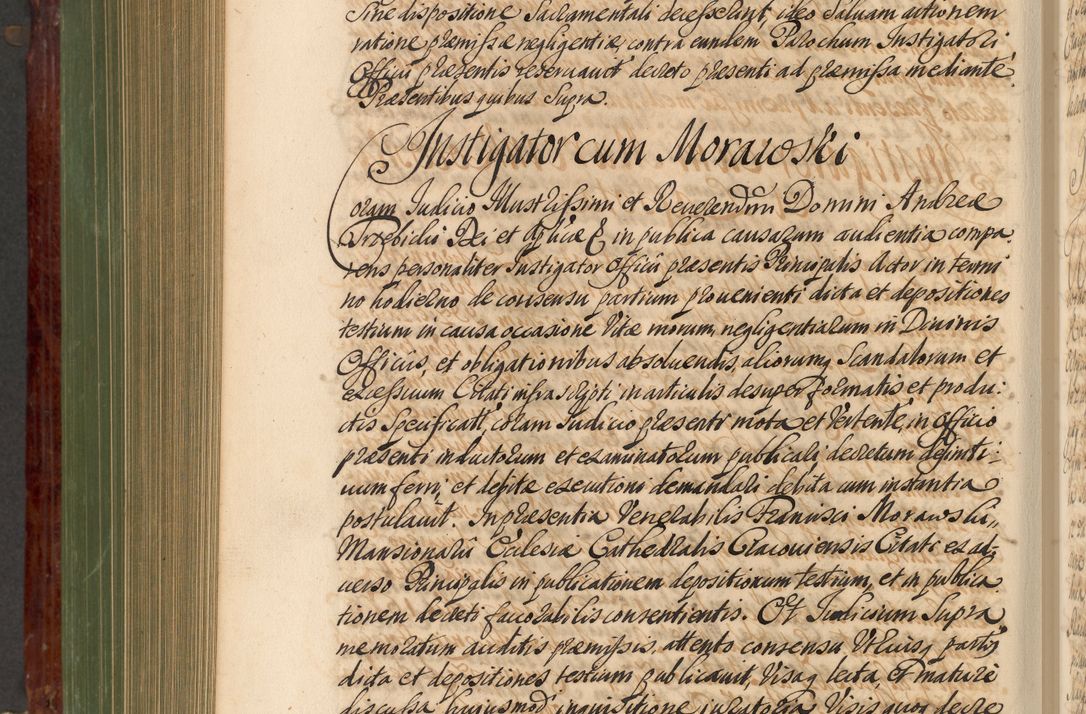 Sine dispositione Sacramentali decesserint, ideo Saluam actionem
ratione præmissæ negligentiæ, contra eundem Parochum Instigatori
Officii præsentis reseruauit decreto præsenti ad præmissa mediante
Præsentibus quibus Supra.
Instigator cum Morawski
Coram Iudicio Illustrissimi et Reuerendissimi Domini Andreæ
Trzebicki Dei et Aplicæ &c in publica causarum audientia compa
rens personaliter Instigator Officii præsentis Principalis Actor in termi
no hodierno de consensu partium proueniente dicta et depositiones
testium in causa occasione Vitæ morum, negligentiarum in Diuinis
Officiis, et obligationibus absoluendis, aliorumq Scandalorum et
excessuum Citati infrascripti, in articulis desuper formatis et produ:
ctis Specificatt, coram Iudicio præsenti mota et Vertente, in Officio
præsenti inductorum et examinatorum publicari decretum definiti:
uum ferri, et debitæ executioni demandari debita cum instantia
postulauit. In præsentia Venerabilis Francisci Morawski,
Mansionarii Ecclesiæ Cathedralis Cracouiensis Citati ex ad,
uerso Principalis in publicationem depositionum testium, et in publica
tionem decreti fauorabilis consentientis. Et Iudicium Supra
memoratum auditis præmissis, attento consensu Vtriusq partis
dicta et depositiones testium publicauit, Visaq lecta, et mature
discussa huiusmodi inquisitione iuratoria Visis quoq decre